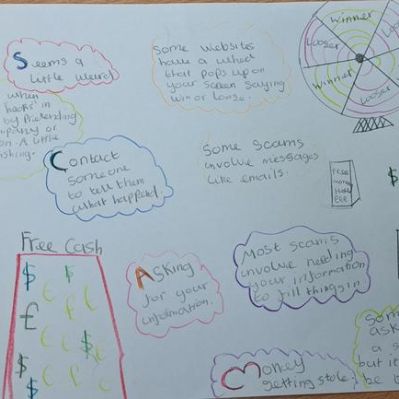 Seems a
little weird
some websites
have a wheel
that pops up on
your screen saying
win or loose.
winner
Looser
Looser
winner
Looser
when
hooks in
by Pretending
mpany or
on. A little
ishing.
Contact
someone
to tell them
what happened.
Some scams
involve messages
like emails.
$
Free Cash
$
$
£
$
$
$
Asking
for your
information.
Most scams
involve needing
your information
to fill things in.
Monkey
getting stole
Som
ask
a s
but it
be